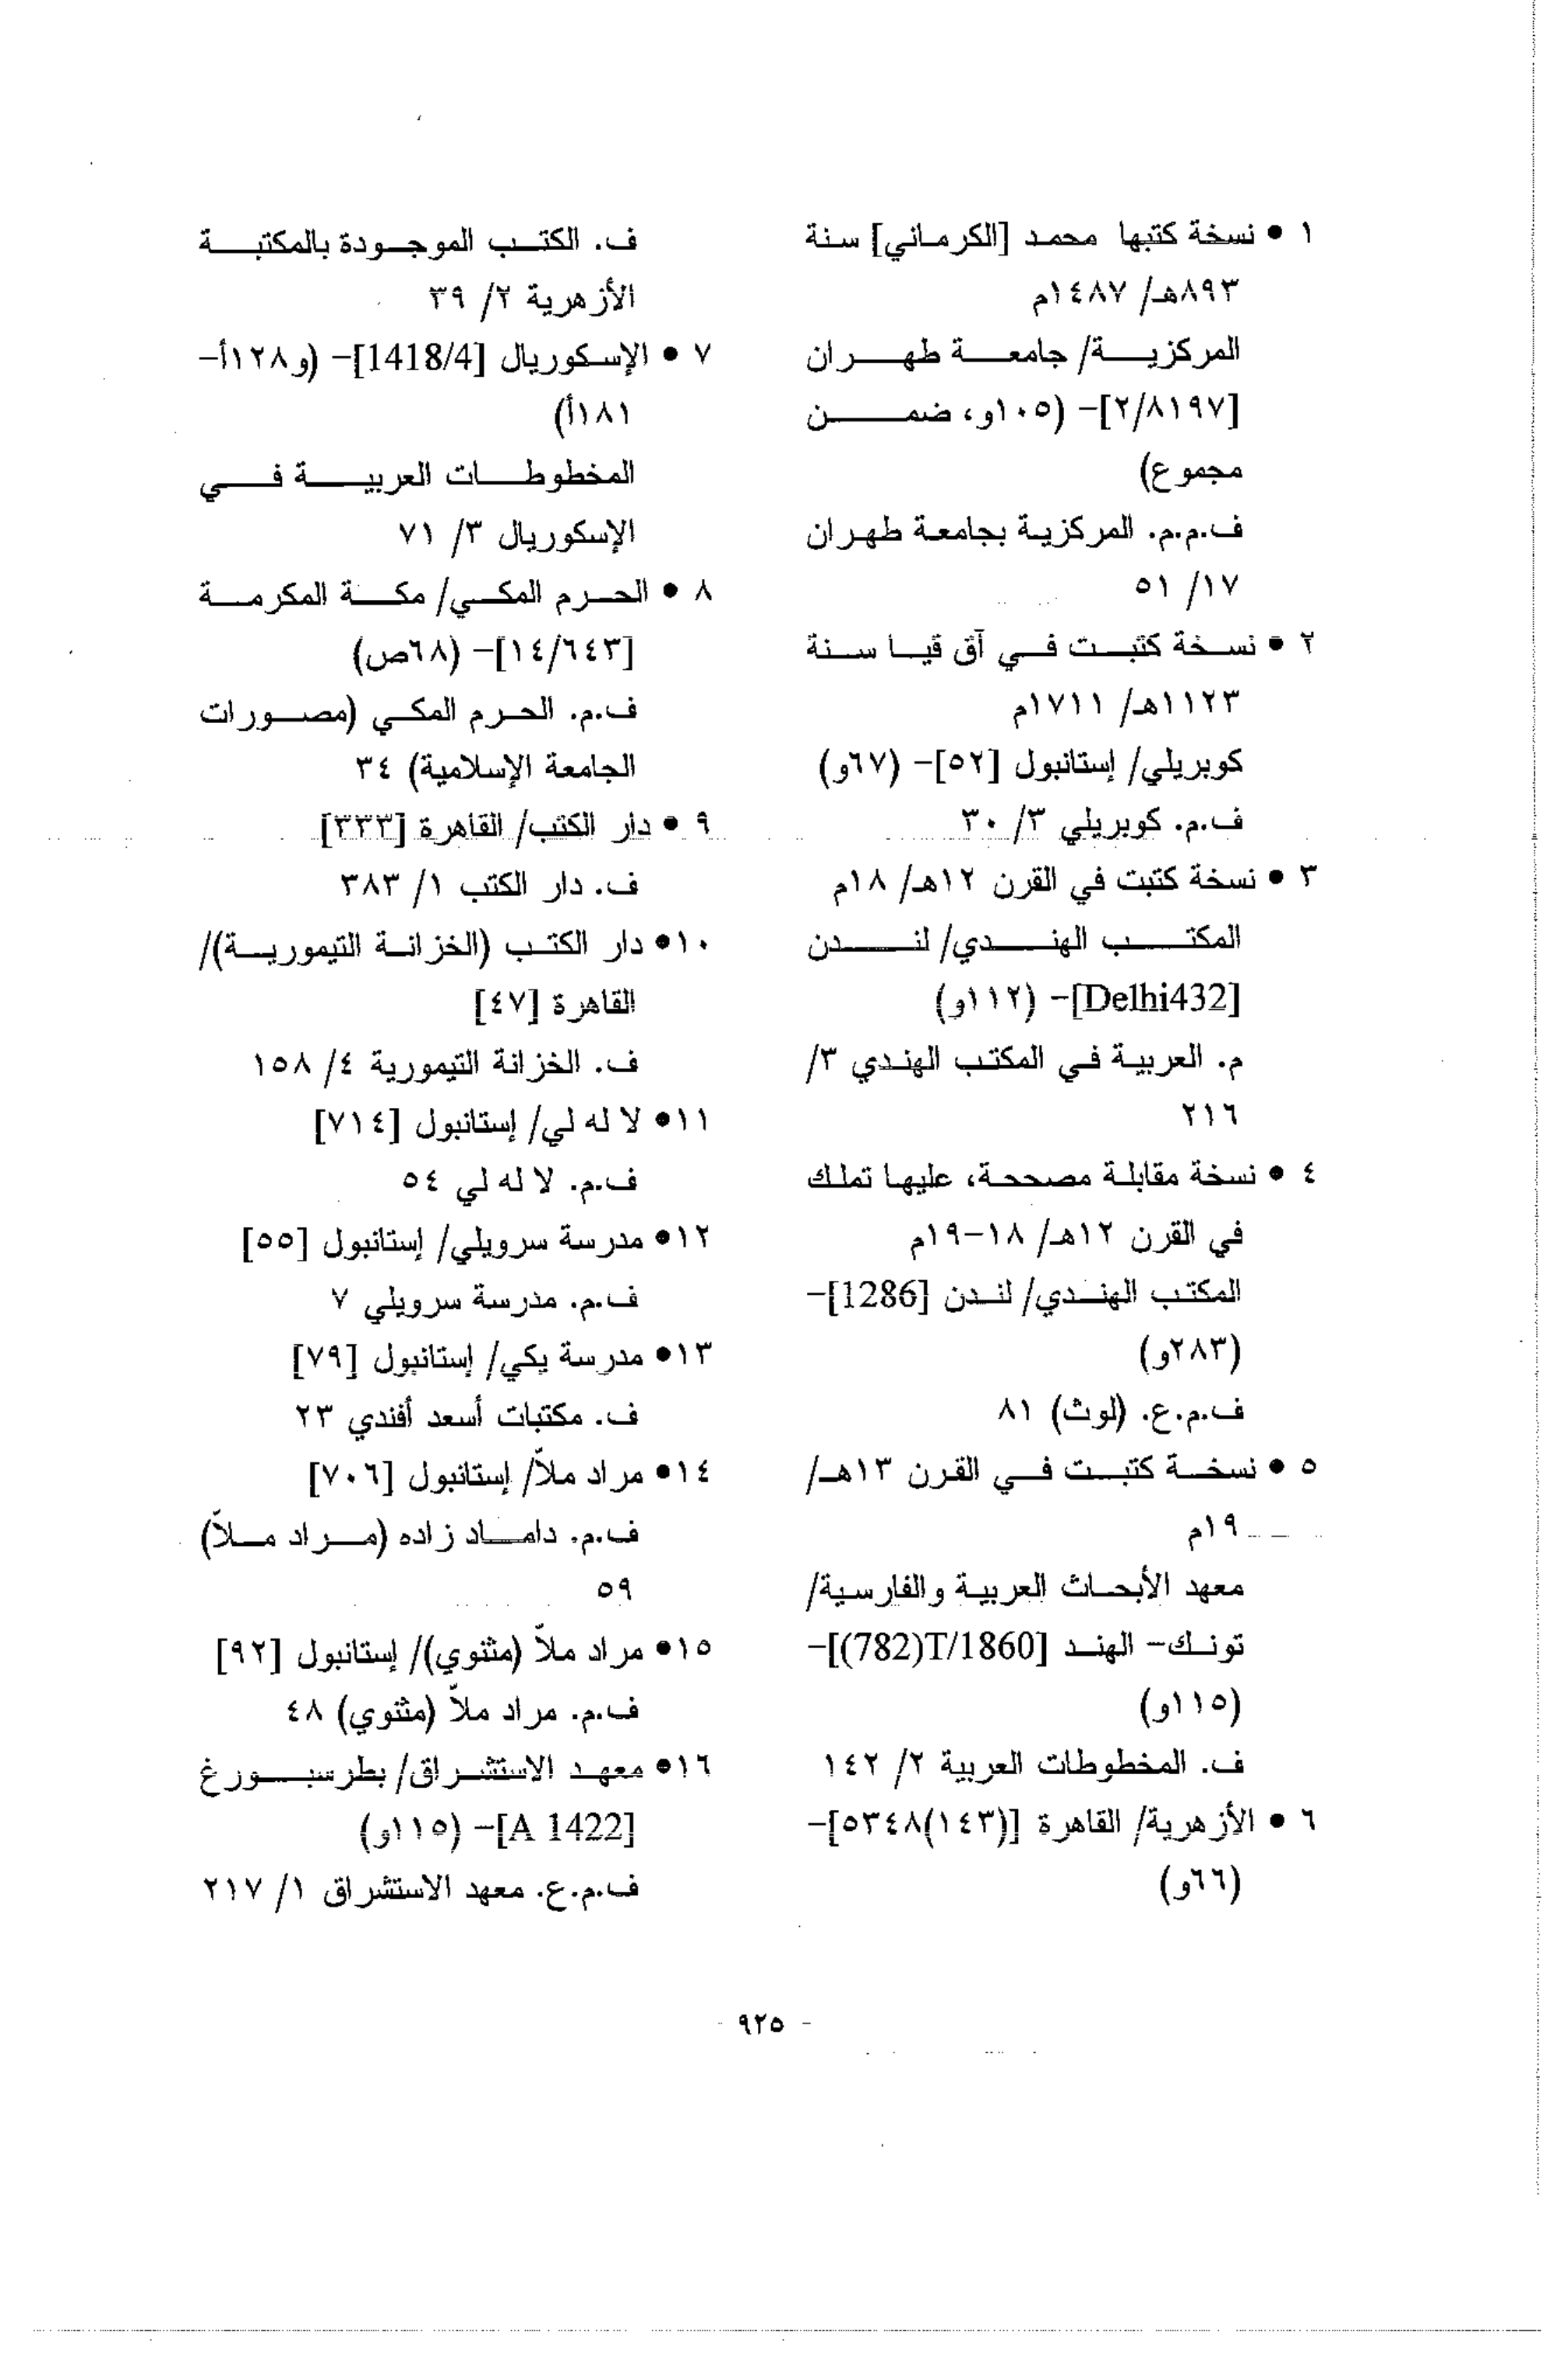 ١ • نسخة كتبها محمد [الكرماني] سنة
٨٩٣هـ/ ١٤٨٧م
المركزية/ جامعة طهران
[٢/٨١٩٧]- (١٠٥و، ضمن
مجموع)
ف.م.م. المركزية بجامعة طهران
١٧/ ٥١
٢ • نسخة كتبت في آق قيا سنة
١١٢٣هـ/ ١٧١١م
كوبريلي/ إستانبول [٥٢]- (٦٧و)
ف.م. كوبريلي ٣/ ٣٠
٣ • نسخة كتبت في القرن ١٢هـ/ ١٨م
المكتب الهندي/ لندن
[Delhi432]- (١١٢و)
م. العربية في المكتب الهندي ٣/
٢١٦
٤ • نسخة مقابلة مصححة، عليها تملك
في القرن ١٢هـ/ ١٨-١٩م
المكتب الهندي/ لندن [1286]-
(٢٨٣و)
ف.م.ع. (لوث) ٨١
٥ • نسخة كتبت في القرن ١٣هـ/
١٩م
معهد الأبحاث العربية والفارسية/
تونك- الهند [782)T/1860)]-
(١١٥و)
ف. المخطوطات العربية ٢/ ١٤٢
٦ • الأزهرية/ القاهرة [(١٤٣)٥٣٤٨]-
(٦٦و)
ف. الكتب الموجودة بالمكتبة
الأزهرية ٢/ ٣٩
٧ • الإسكوريال [1418/4]- (و١٢٨أ-
١٨١أ)
المخطوطات العربية في
الإسكوريال ٣/ ٧١
٨ • الحرم المكي/ مكة المكرمة
[١٤/٦٤٣]- (٦٨ص)
ف.م. الحرم المكي (مصورات
الجامعة الإسلامية) ٣٤
٩ • دار الكتب/ القاهرة [٣٣٣]
ف. دار الكتب ١/ ٣٨٣
١٠• دار الكتب (الخزانة التيمورية)/
القاهرة [٤٧]
ف. الخزانة التيمورية ٤/ ١٥٨
١١• لا له لي/ إستانبول [٧١٤]
ف.م. لا له لي ٥٤
١٢• مدرسة سرويلي/ إستانبول [٥٥]
ف.م. مدرسة سرويلي ٧
١٣• مدرسة يكي/ إستانبول [٧٩]
ف. مكتبات أسعد أفندي ٢٣
١٤• مراد ملاّ/ إستانبول [٧٠٦]
ف.م. داماد زاده (مراد ملاّ)
٥٩
١٥• مراد ملاّ (مثنوي)/ إستانبول [٩٢]
ف.م. مراد ملاّ (مثنوي) ٤٨
١٦• معهد الاستشراق/ بطرسبورغ
[A 1422]- (١١٥و)
ف.م.ع. معهد الاستشراق ١/ ٢١٧
- ٩٢٥ -